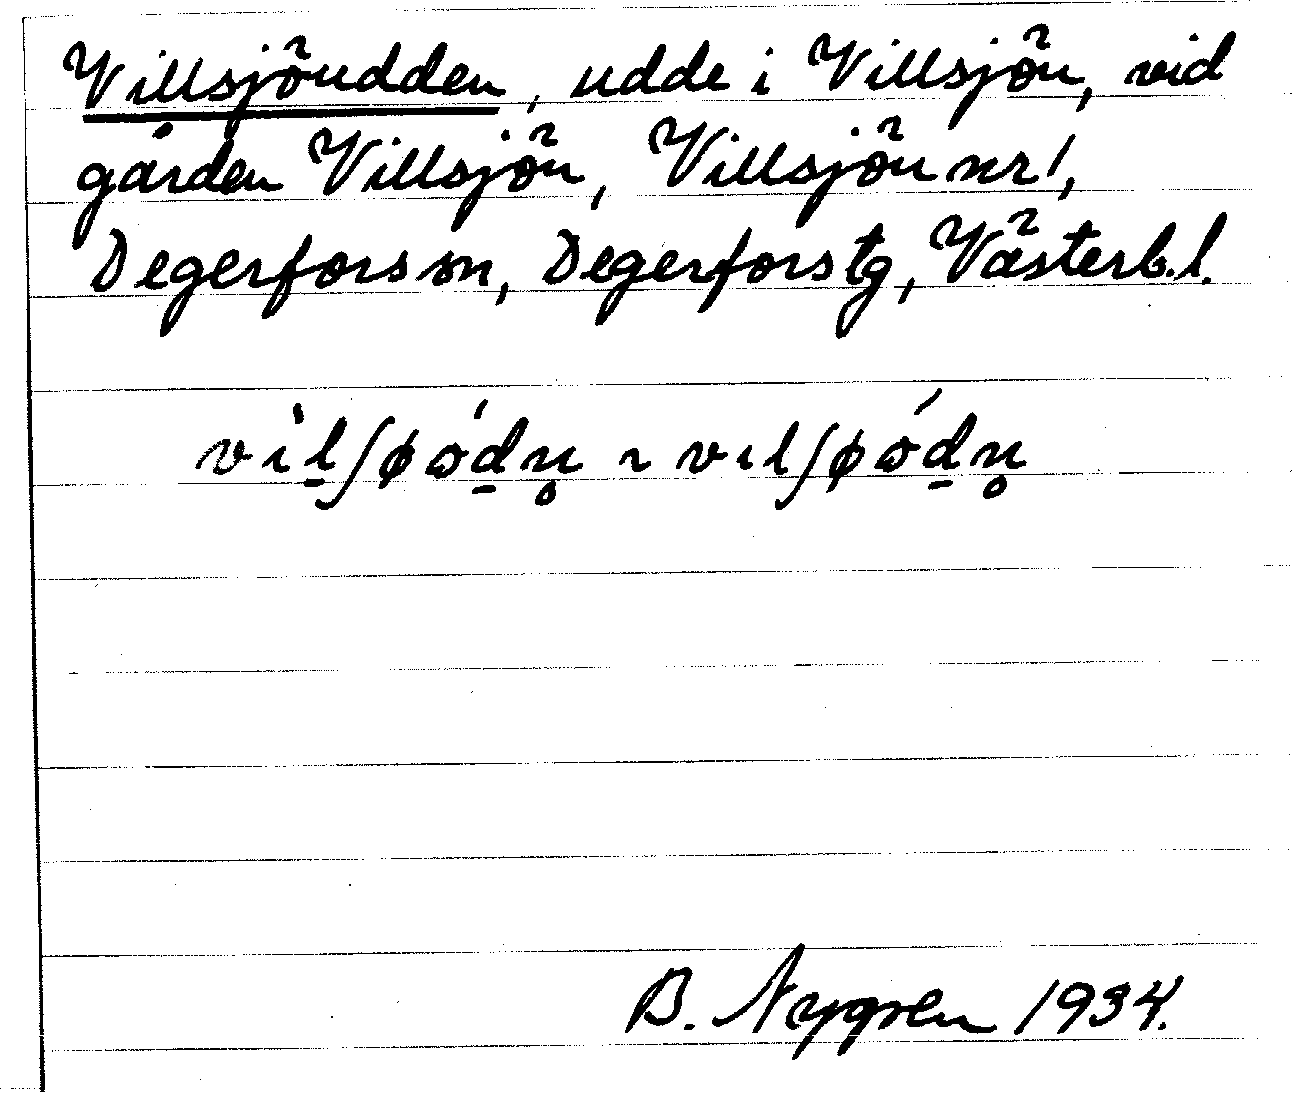 Villsjöudden, udde i Villsjön, vid
gården Villsjön, Villsjön nr 1,
Degerfors sn, Degerfors tg, Västerb. l.
vìl̠ʃøód̠n̥ ~ vılʃøód̠n̥
B. Nygren 1934.